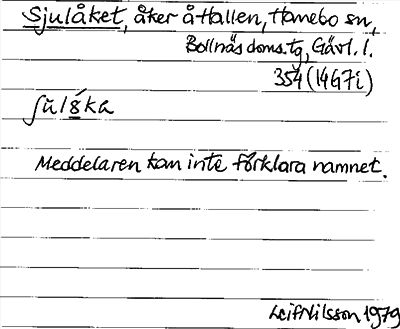 Sjulåket, åker å Hallen, Hanebo sn,
Bollnäs doms. tg, Gävl. l.
354 (14G7i)
ʃu̇l8́ka
Meddelaren kan inte förklara namnet.
Leif Nilsson 1979